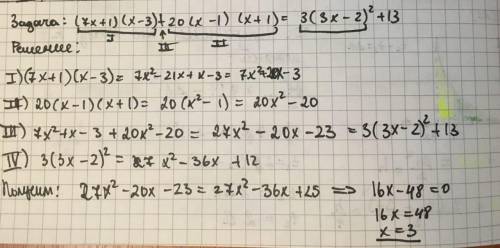 Задача: (7x+1)(x-3)+20(x-1)(x+1)= 3(3x-2)²+13
I III II
Решение:
I)(7x+1)(x-3)= 7x²-21x+x-3= 7x²-20x-3
II) 20(x-1)(x+1)= 20(x²-1)= 20x²-20
III) 7x²+x-3+20x²-20= 27x²-20x-23 = 3(3x-2)²+13
IV) 3(3x-2)²= 27x²-36x+12
Получим: 27x²-20x-23=27x²-36x+25 => 16x-48=0
16x=48
x=3